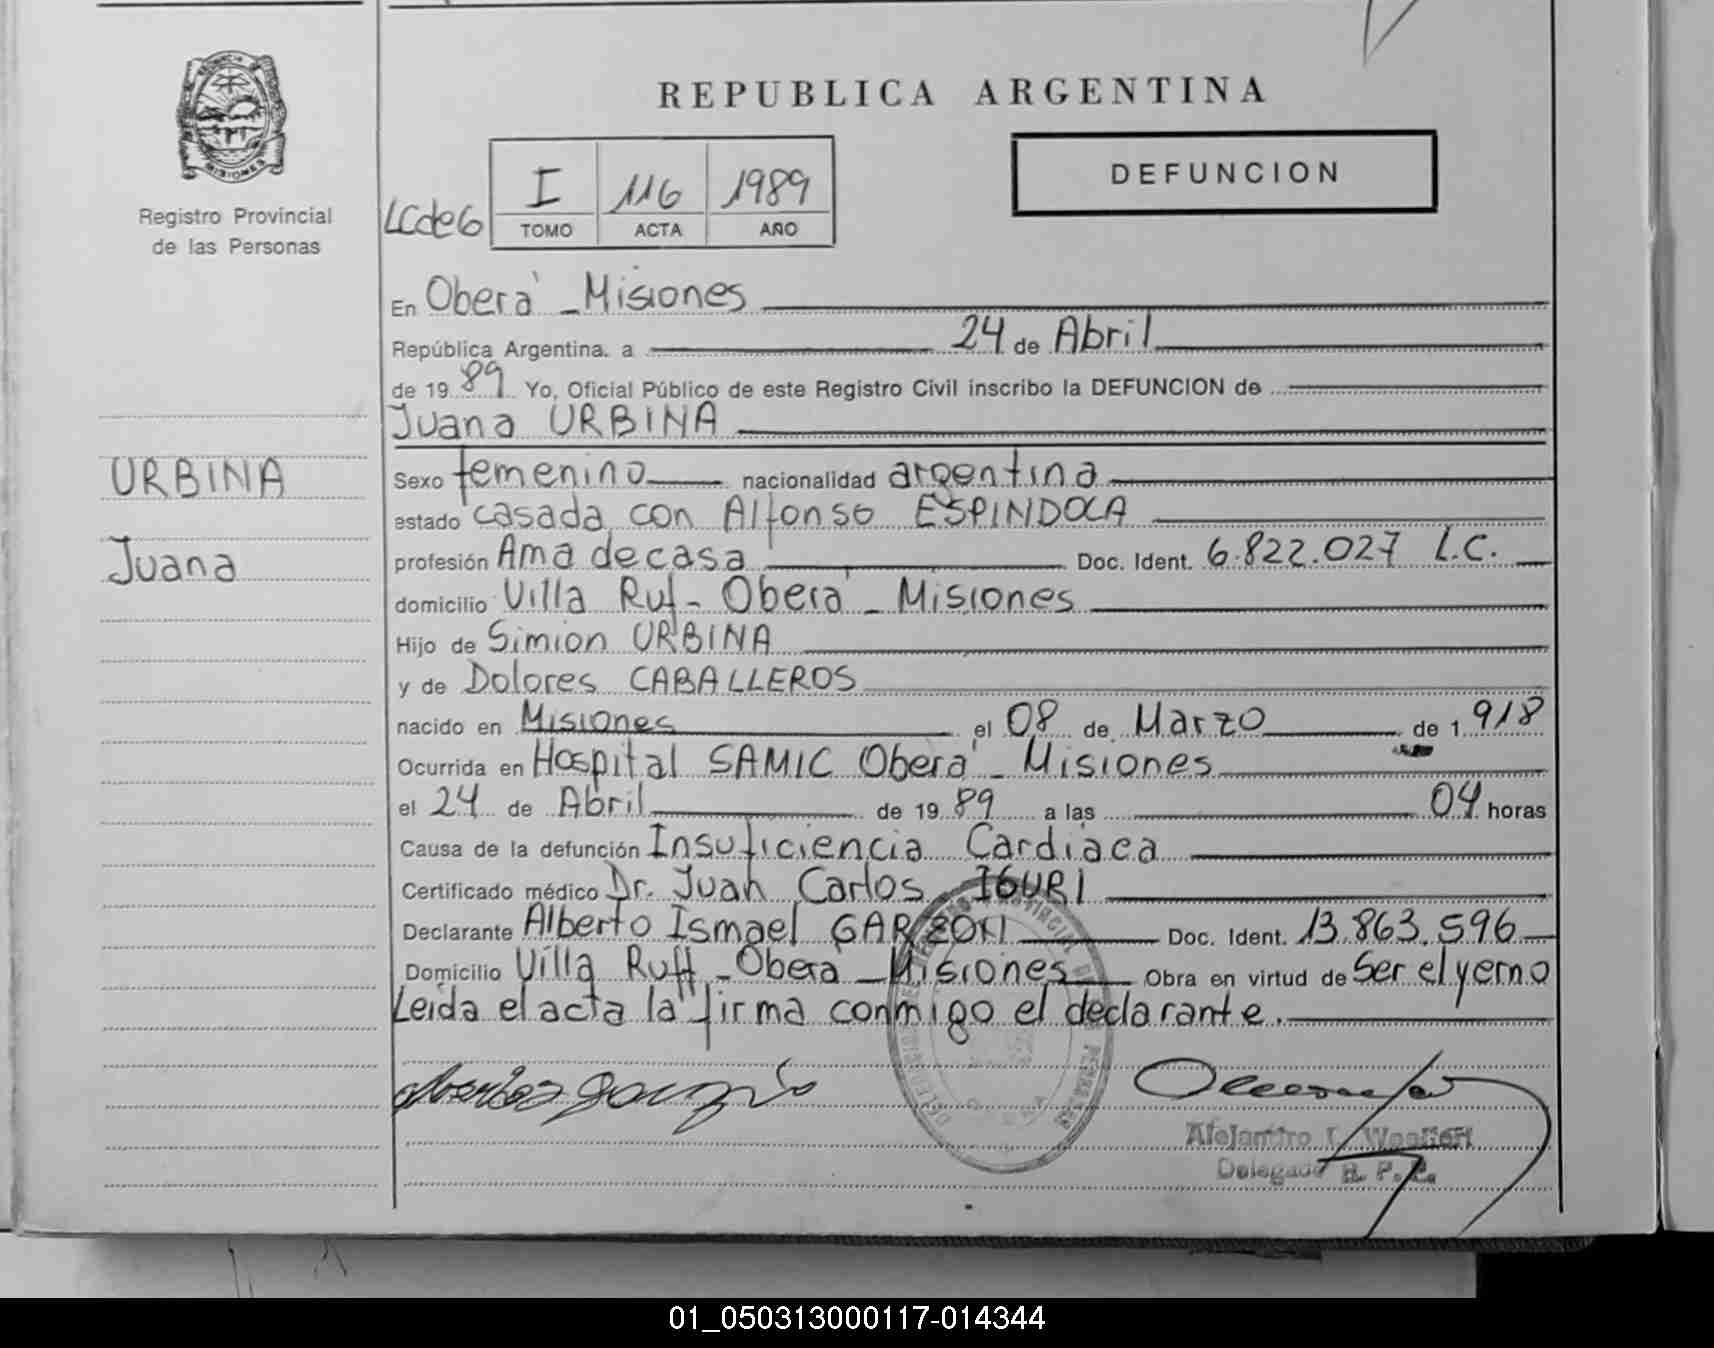 REPUBLICA ARGENTINA
MISIONES
Registro Provincial
de las Personas
LCde6
I 116 1989
TOMO ACTA AÑO
DEFUNCION
En Oberá - Misiones
República Argentina. a 24 de Abril
de 19 89 Yo, Oficial Público de este Registro Civil inscribo la DEFUNCION de
Juana URBINA
URBINA
Juana
Sexo femenino nacionalidad argentina
estado casada con Alfonso ESPINDOLA
profesión Ama de casa Doc. Ident. 6.822.027 L.C.
domicilio Villa Ruf - Oberá - Misiones
Hijo de Simion URBINA
y de Dolores CABALLEROS
nacido en Misiones el 08 de Marzo de 1 918
Ocurrida en Hospital SAMIC Oberá - Misiones
el 24 de Abril de 19 89 a las 04 horas
Causa de la defunción Insuficiencia Cardiaca
Certificado médico Dr. Juan Carlos IGURI
Declarante Alberto Ismael GARZON Doc. Ident. 13.863.596
Domicilio Villa Ruff - Obera - Misiones Obra en virtud de Ser el yerno
Leida el acta la firma conmigo el declarante.
Alejandro I.
Delegado R. P. P.
01_050313000117-014344